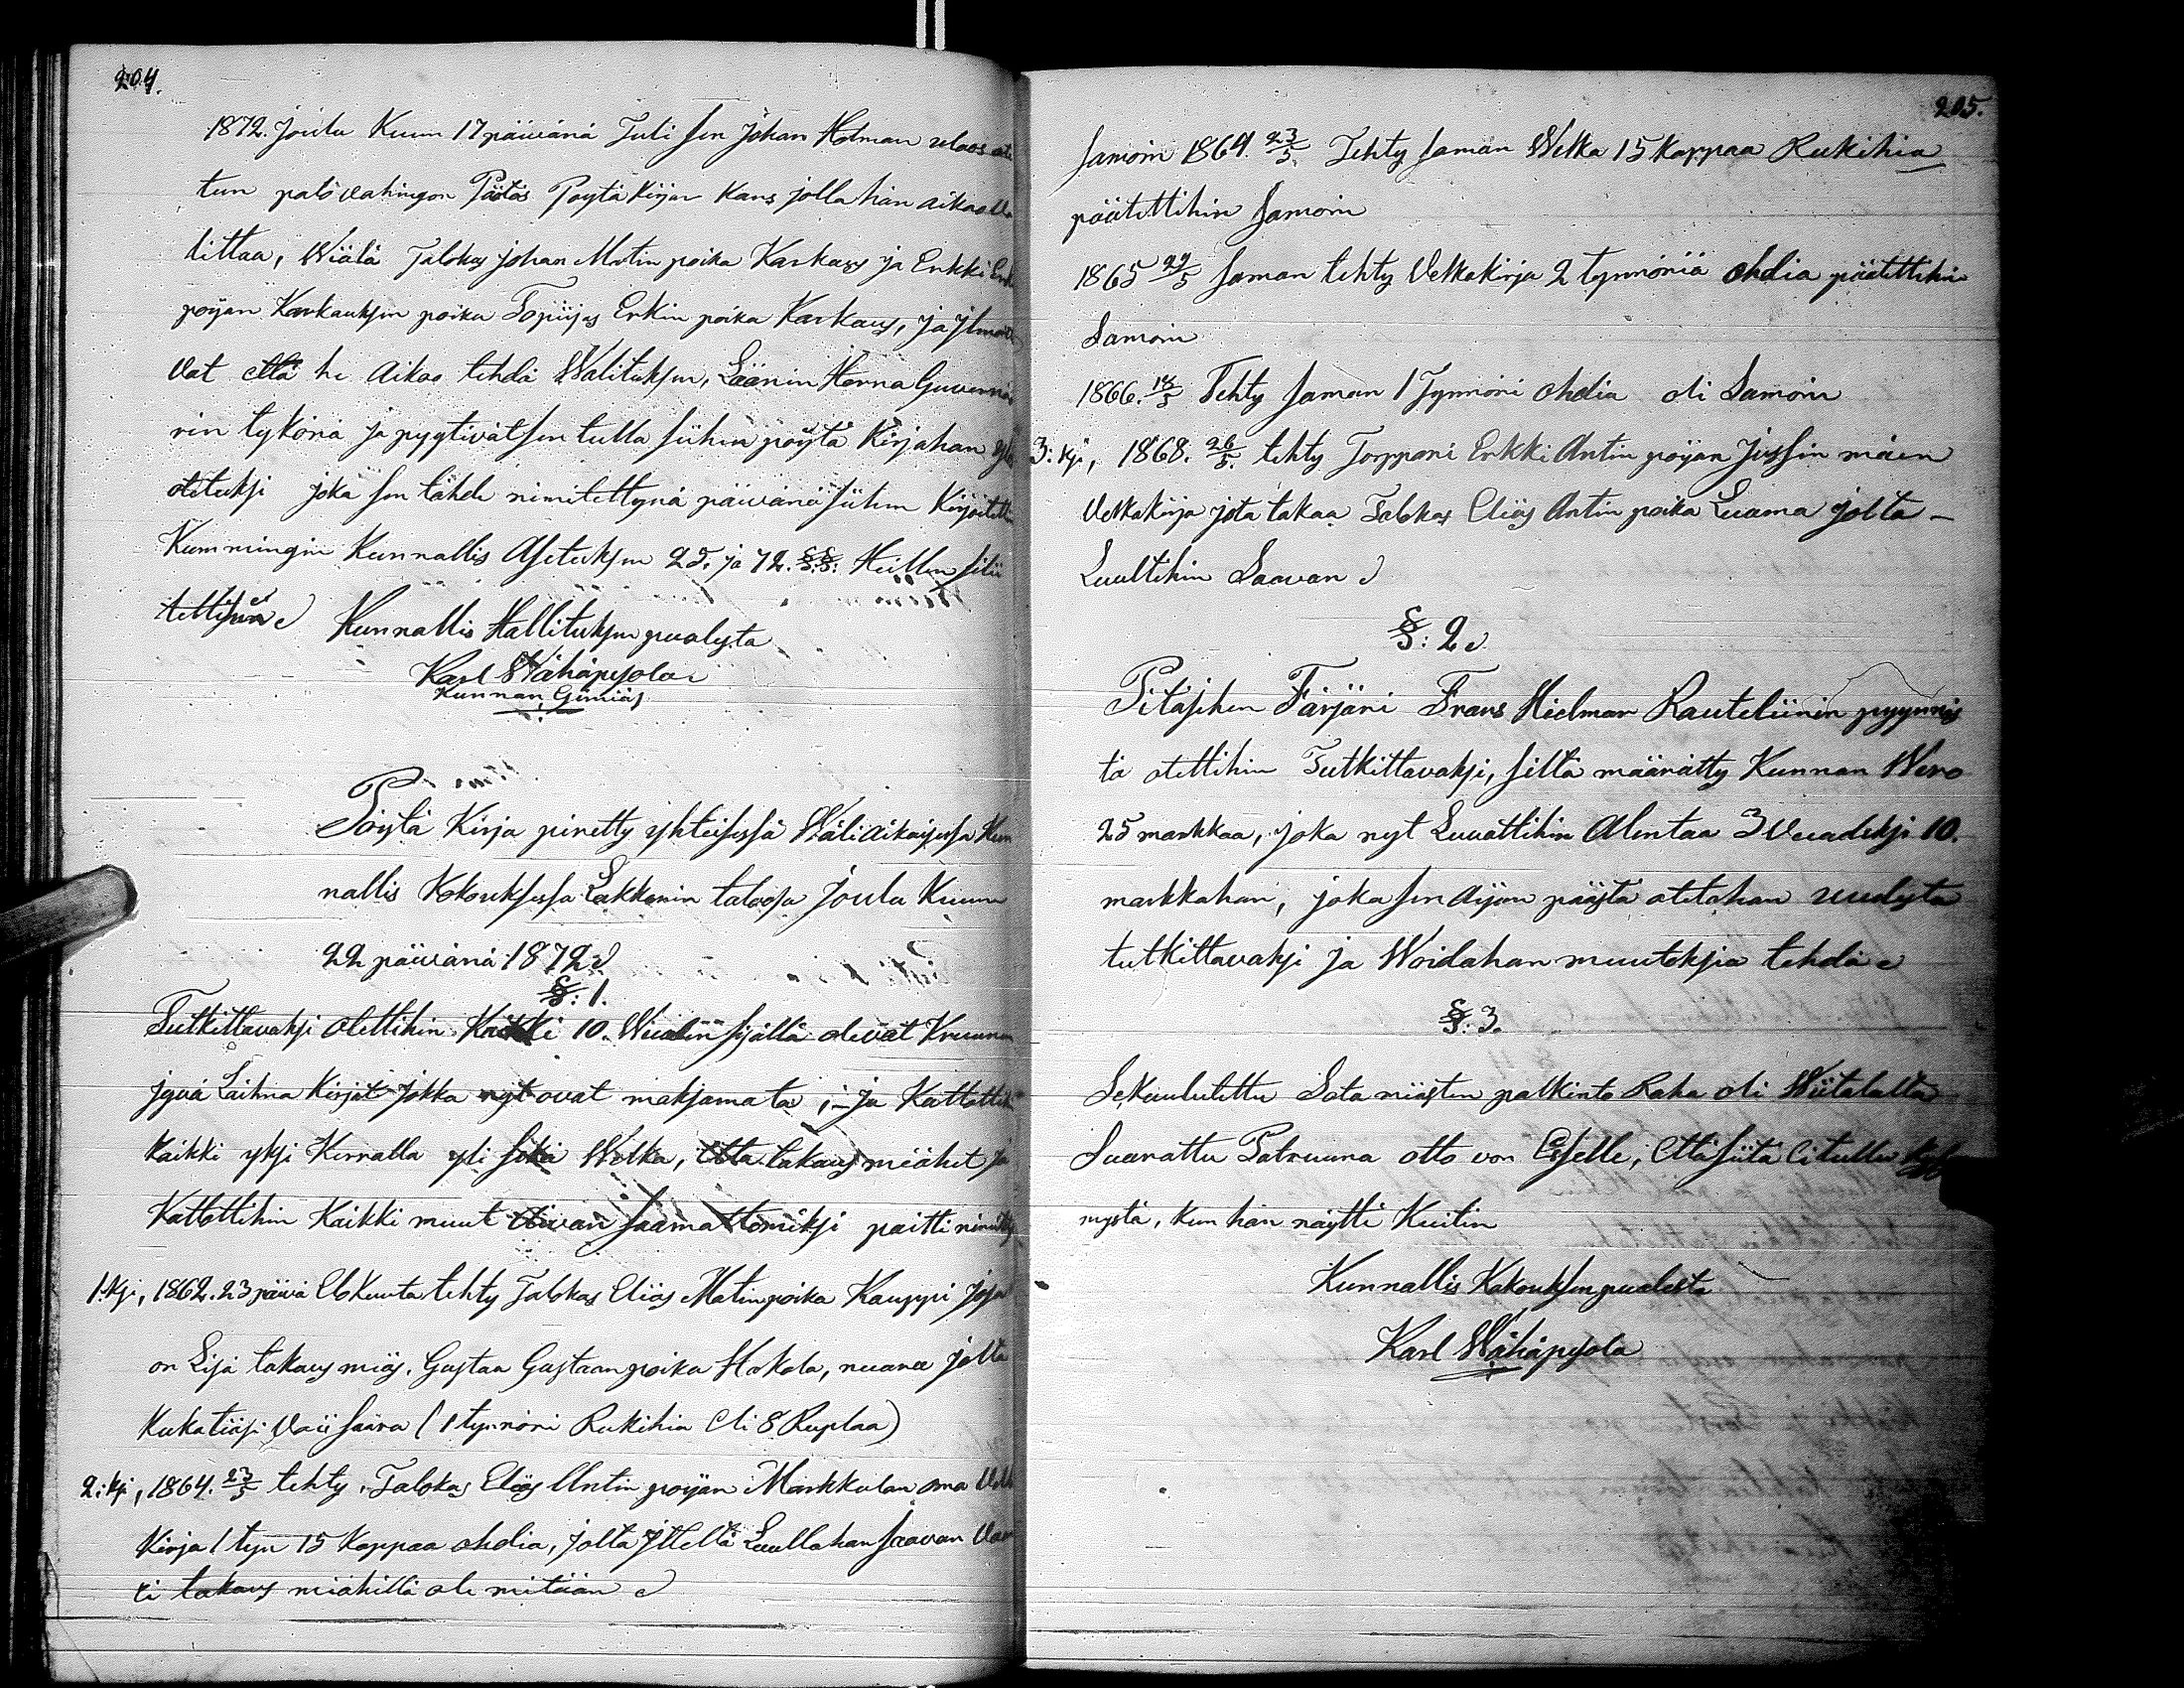 204.
1872. Joulu Kuun 17 päivänä Tuli sen Johan Holman
tun palo vahingon Päätös Pöytä Kirjan Kans jolla hän aikoo
littaa, Wiälä Talokas Johan Matin poika Karkaus ja Erkki
poijan Karkauksen poika Topiijas Erkin poika Karkaus, ja
vat että he Aikoo tehdä Walituksen, Läänin Herra Guvernöö
rin tykönä ja pyytivät sen tulla siihen pöytä Kirjahan
otetuksi joka sen tähde nimitettynä päivänä siihen Kirjoitetti
Kumminqin Kunnallis Asetuksen 25. ja 72. §§: Heillen
Kunnallis Hallituksen puolesta
Karl Wähäpesola
Kunnan Esimiäs
Pöytä Kirja piretty yhteisessä Wäli aikaisessa Kun
nallis Kokouksessa Lakkarin taloosa Joulu Kuun
22 päivänä 1872
§: 1.
Tutkittavaksi otettihin Kaikki 10. Wuaden sisällä olevat Kruunun
jyvä Laihna Kirjat jokka nyt ovat maksamata, ja Kattottih
Kaikki yksi Kerralla yli sekä Welka, että takaus miähet ja
Kattottihin Kaikki muut Aivan saamattomiksi paitti
1.ksi, 1862. 23 päivä Elokuuta tehty Talokas Eliäs Matin poika Kauppi josa
on Lisä takaus miäs. Gustaa Gustaan poika Hakola, nuaree jolta
Kukatiäsi Vaii saara (1 tynnöri Rukihia Eli 8 Ruplaa)
2:ksi, 1864. 23/5 tehty. Talokas Eliäs Antin poijan Markkulan oma
Kirja 1 tyn 15 Kappaa ohdia, jolta Ittellä Luullahan saavan
ei takaus miähillä ole mitään
205.
Samoin 1864. 23/5. Tehty saman Welka 15 Kappaa Rukihia
päätettihin samoin
1865 29/5 saman tehty Velkakirja 2 tynnöriä ohdia päätettihin
Samoin
1866. 18/5 Tehty saman 1 Tynnöri ohdia oli Samoin
3:ksi, 1868. 26/5. tehty Torppari Erkki Antin poijan Jussin mäen
Velkakirja jota takaa Talokas Eliäs Antin poika Luoma jolta –
Luultihin Saavan
§: 2
Pitäjähen Färjäri Frans Hielman Rauteliinin pyynnös
tä otettihin Tutkittavaksi, siltä määrätty Kunnan Wero
25 markkaa, joka nyt Luvattihin Alentaa 3 Vuadeksi 10.
markkahan, joka sen Aijan päästä otetahan uudesta
tutkittavaksi ja Woidahan muutoksia tehdä
§: 3.
Sekuulutettu Sota miästen palkinto Raha oli Wiitalalta
Suarattu Patruuna otto von Esselle, Että siitä Ei tullu
mystä, kun hän näytti Kuitin
Kunnallis Kokouksen puolesta
Karl Wähäpesola